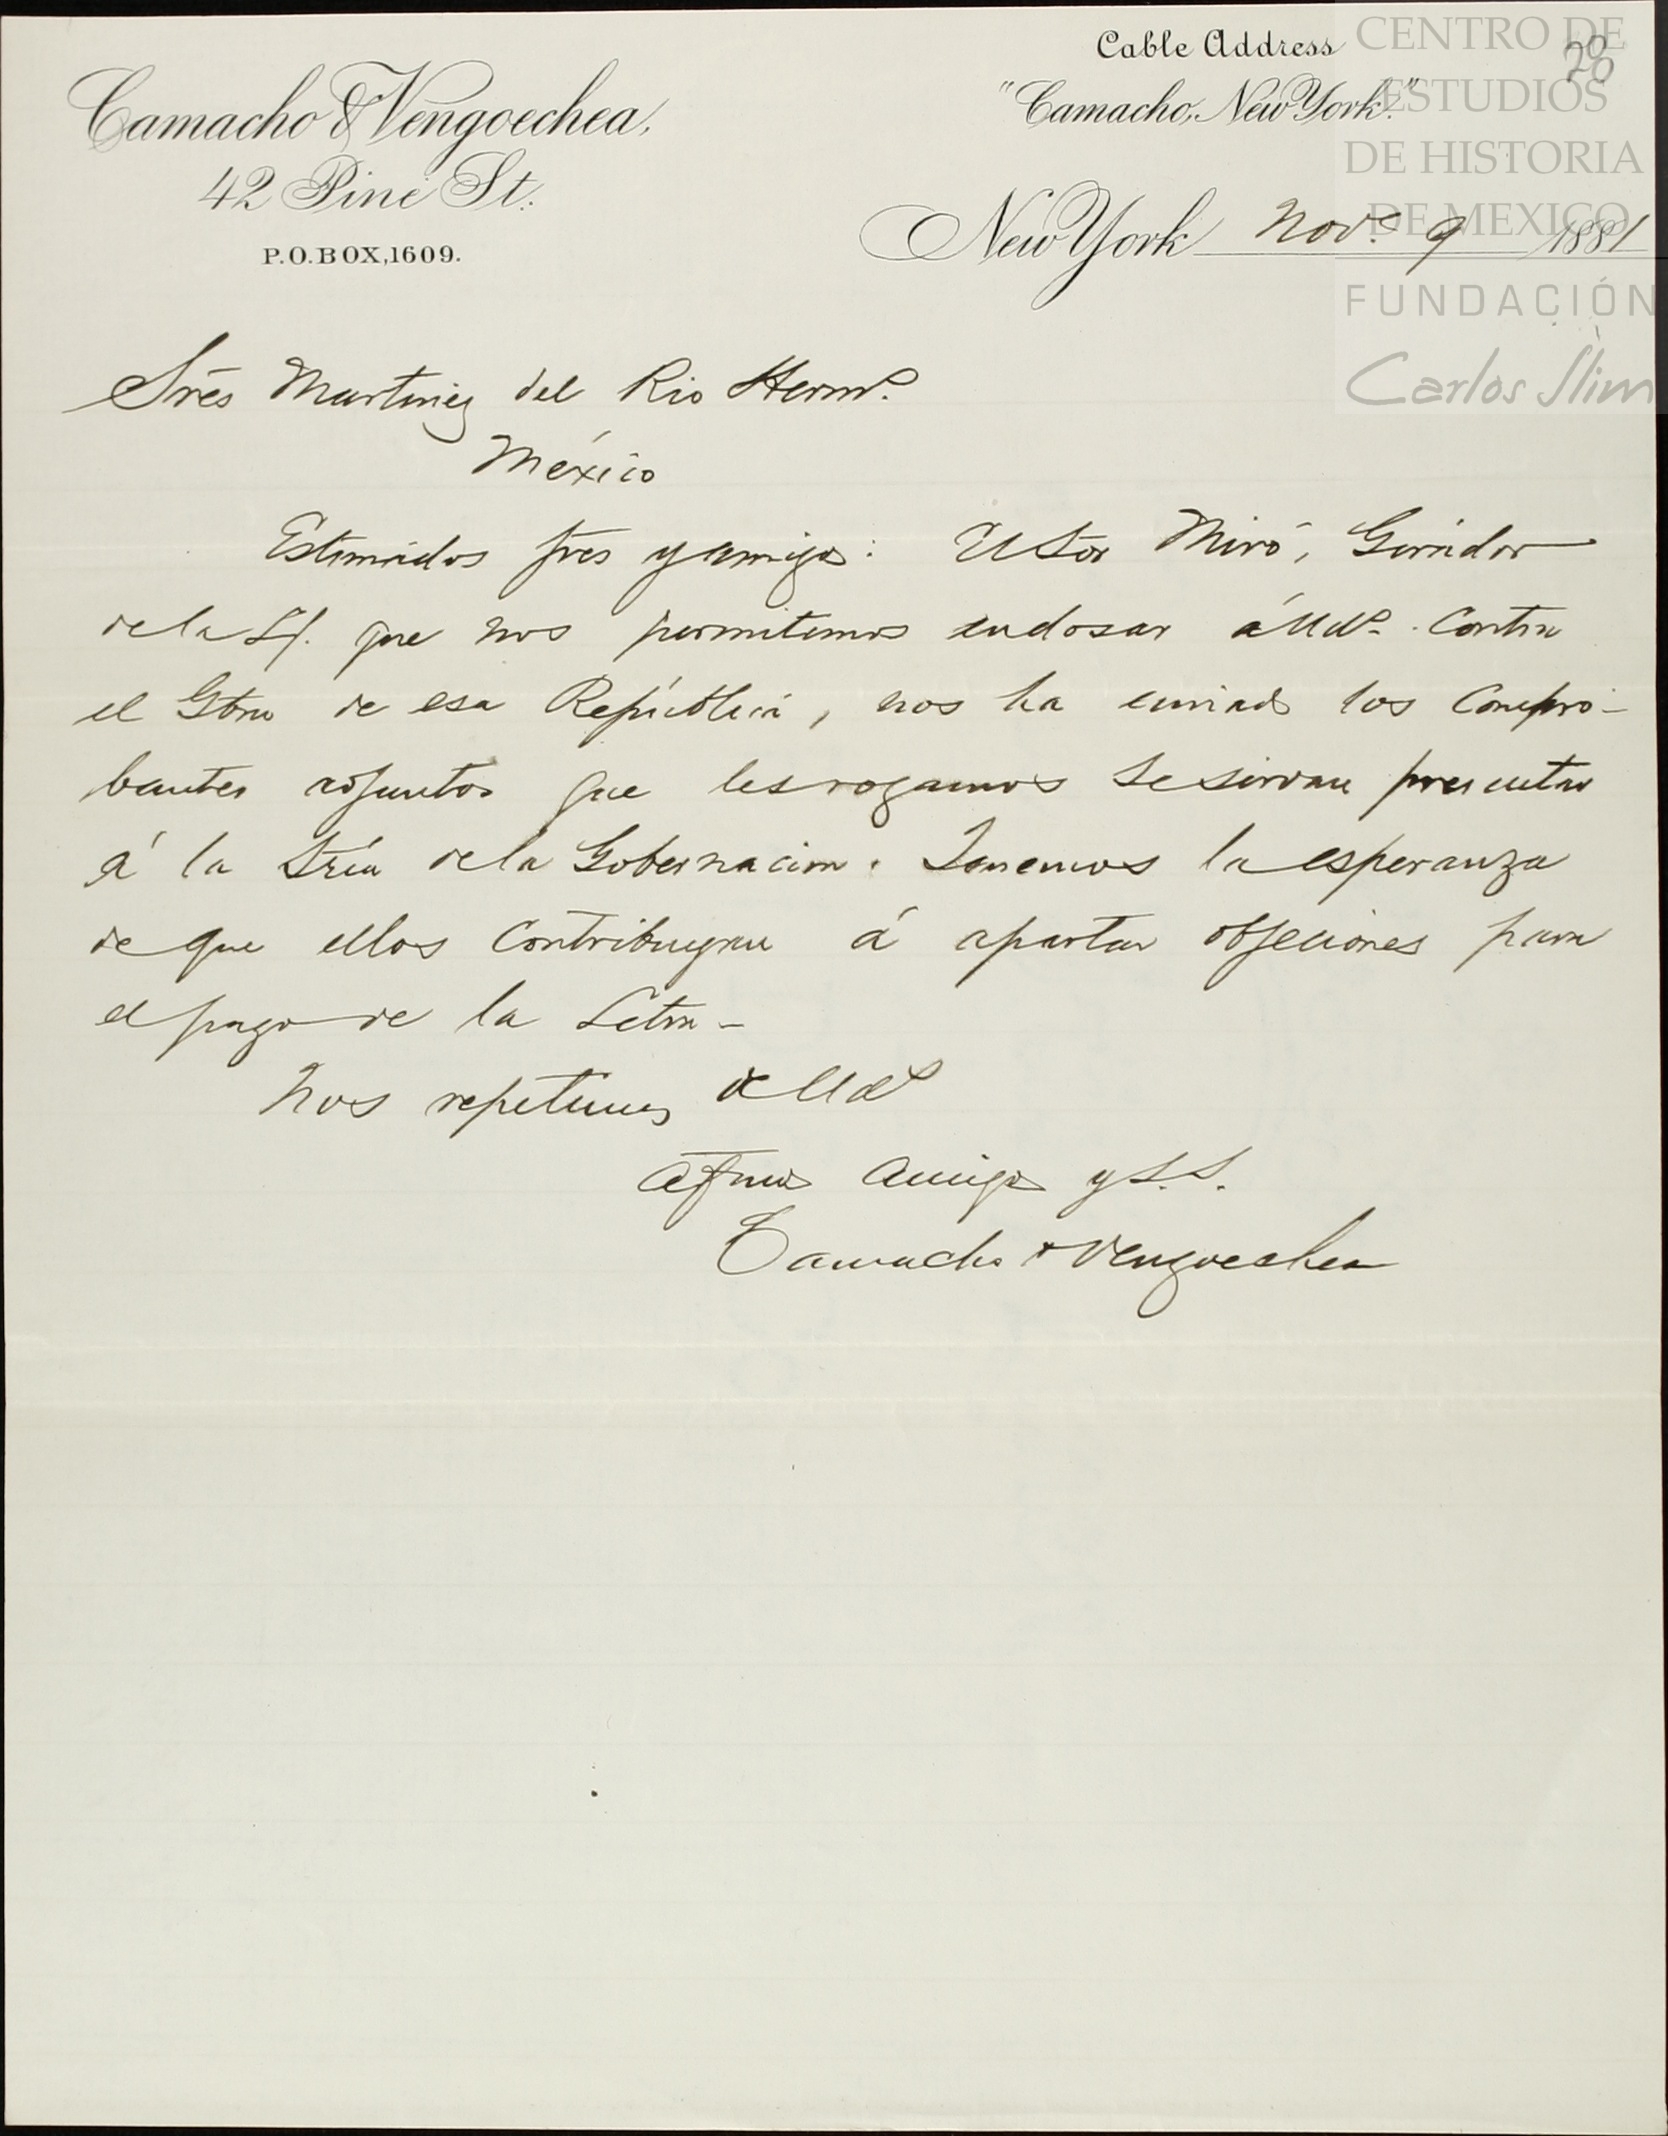 Camacho & Vengoechea,
42 Pine St.
P.O. BOX, 1609.
Cable Address
"Camacho, New York."
20
New York Nov. 9 1881
CENTRO DE
ESTUDIOS
DE HISTORIA
DE MEXICO
FUNDACIÓN
Carlos Slim
Sres Martinez del Rio Hermº.
México
Estimados Sres y amigos: El Sor Miró, Girador
de la L/. que nos permitimos endosar á Uds. contra
el Gbno de esa República, nos ha enviado los compro-
bantes adjuntos que les rogamos se sirvan presentar
á la Sría de la Gobernacion. Tenemos la esperanza
de que ellos contribuyan á apartar objeciones para
el pago de la Letra -
Nos repetimos de Uds
afmos amigos y S.S.
Camacho & Vengoechea